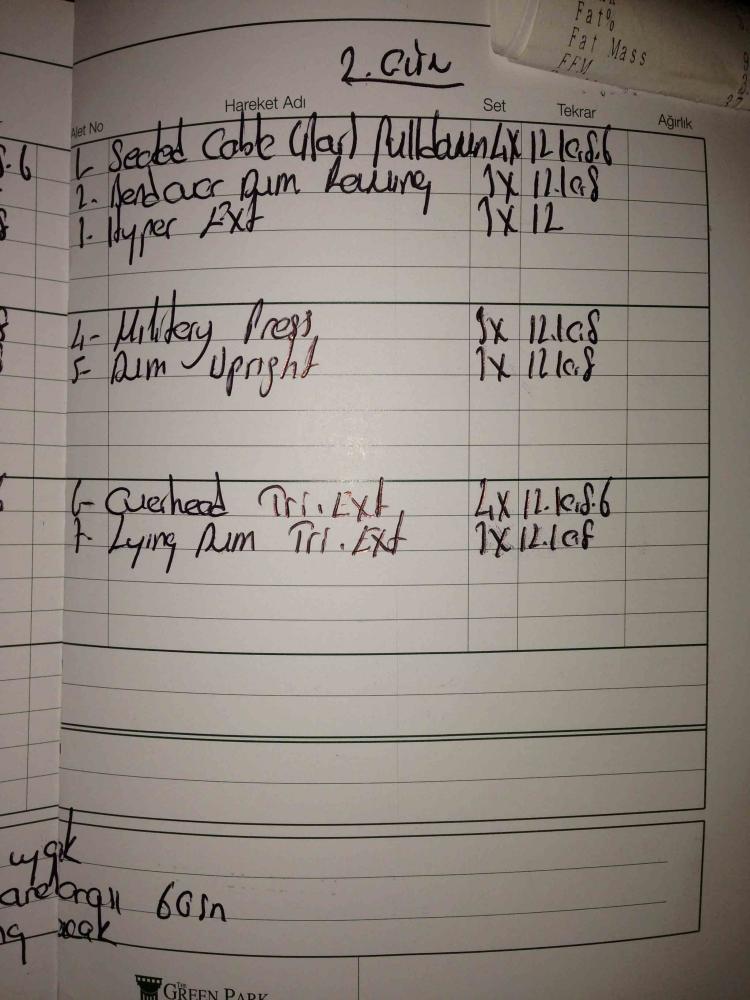 Fat%
Fat Mass
FFM
2. Gün
Alet No Hareket Adı Set Tekrar Ağırlık
1. Seated Cable (Nar) Pulldown 4x 12.10.8.6
2. Bendover Dum Rowing 3x 12.10.8
3- Hyper Ext 3x 12
4- Military Press 3x 12.10.8
5- Dum Upright 3x 12.10.8
6- Overhead Tri. Ext 4x 12.10.8.6
7- Lying Dum Tri. Ext 3x 12.10.8
60sn
THE GREEN PARK